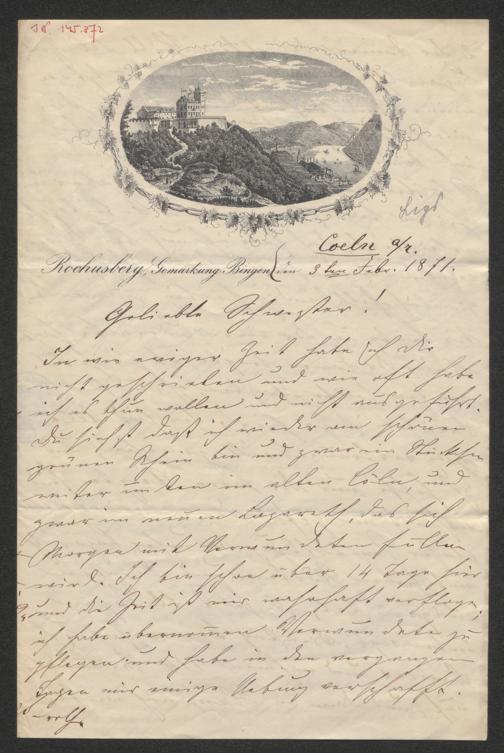 IN 145.872
Ligs
Coeln a/R.
Rochusberg, Gemarkung Bingen, den 3ten Febr. 1871.
Geliebte Schwester!
In wie ewiger Zeit habe ich dir
nicht geschrieben und wie oft habe
ich es thun wollen und nicht ausgeführt.
Du siehst daß ich wieder am schönen
grünen Rhein bin und zwar ein Stückchen
weiter unten im alten Cöln, und
zwar im neuen Lazareth, das sich
Morgen mit Verwundeten füllen
wird. Ich bin schon über 14 Tage hier
und die Zeit ist mir wahrhaft verflogen,
ich habe übernommen Verwundete zu
pflegen und habe in den vergangenen
Tagen mir einige Uebung verschafft.